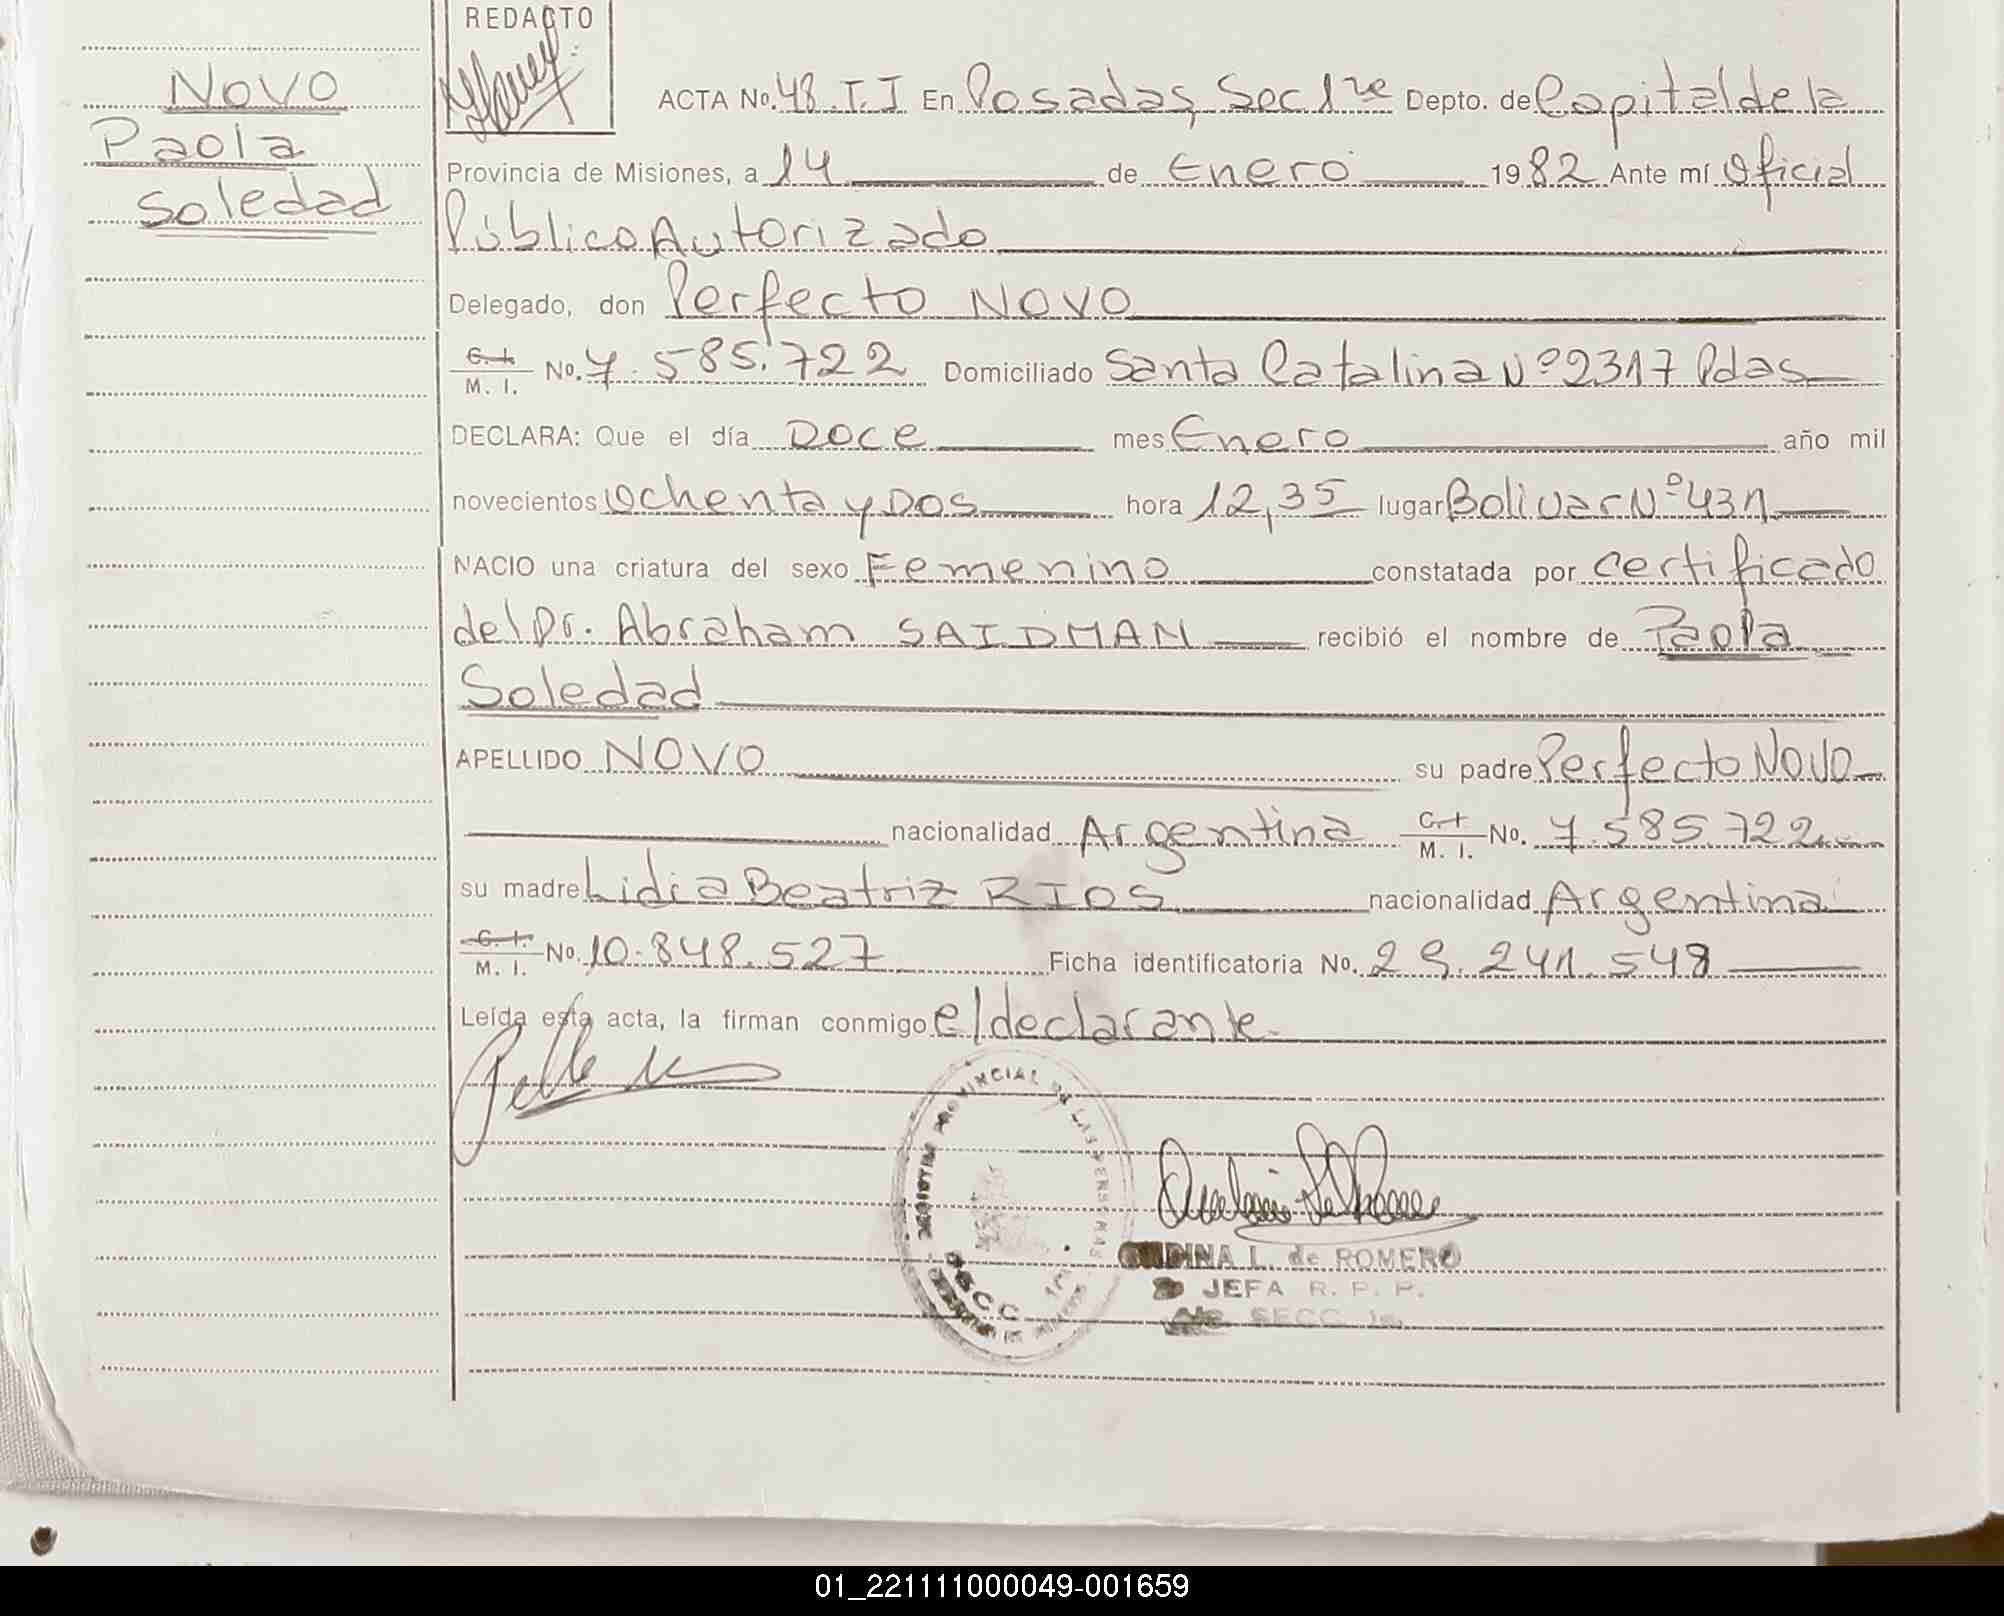 REDACTO
NOVO
Paola
Soledad
ACTA No. 48. T. I En Posadas, Secc 1ra Depto. de Capital de la
Provincia de Misiones, a 14 de Enero 1982 Ante mí Oficial
Público Autorizado
Delegado, don Perfecto NOVO
C. I. M. I. No. 7.585.722 Domiciliado Santa Catalina Nº 2317 Pdas
DECLARA: Que el día Doce mes Enero año mil
novecientos Ochenta y Dos hora 12,35 lugar Bolivar Nº 431
NACIO una criatura del sexo Femenino constatada por certificado
del Dr. Abraham SAIDMAN recibió el nombre de Paola
Soledad
APELLIDO NOVO su padre Perfecto Novo
nacionalidad Argentina C. I. M. I. No. 7.585.722
su madre Lidia Beatriz RIOS nacionalidad Argentina
C. I. M. I. No. 10.848.527 Ficha identificatoria No. 29.241.548
Leída esta acta, la firman conmigo el declarante.
PROVINCIAL DE LAS PERSONAS
SECC.
L. de ROMERO
JEFA R. P. P.
A/c SECC. 1a.
01_221111000049-001659